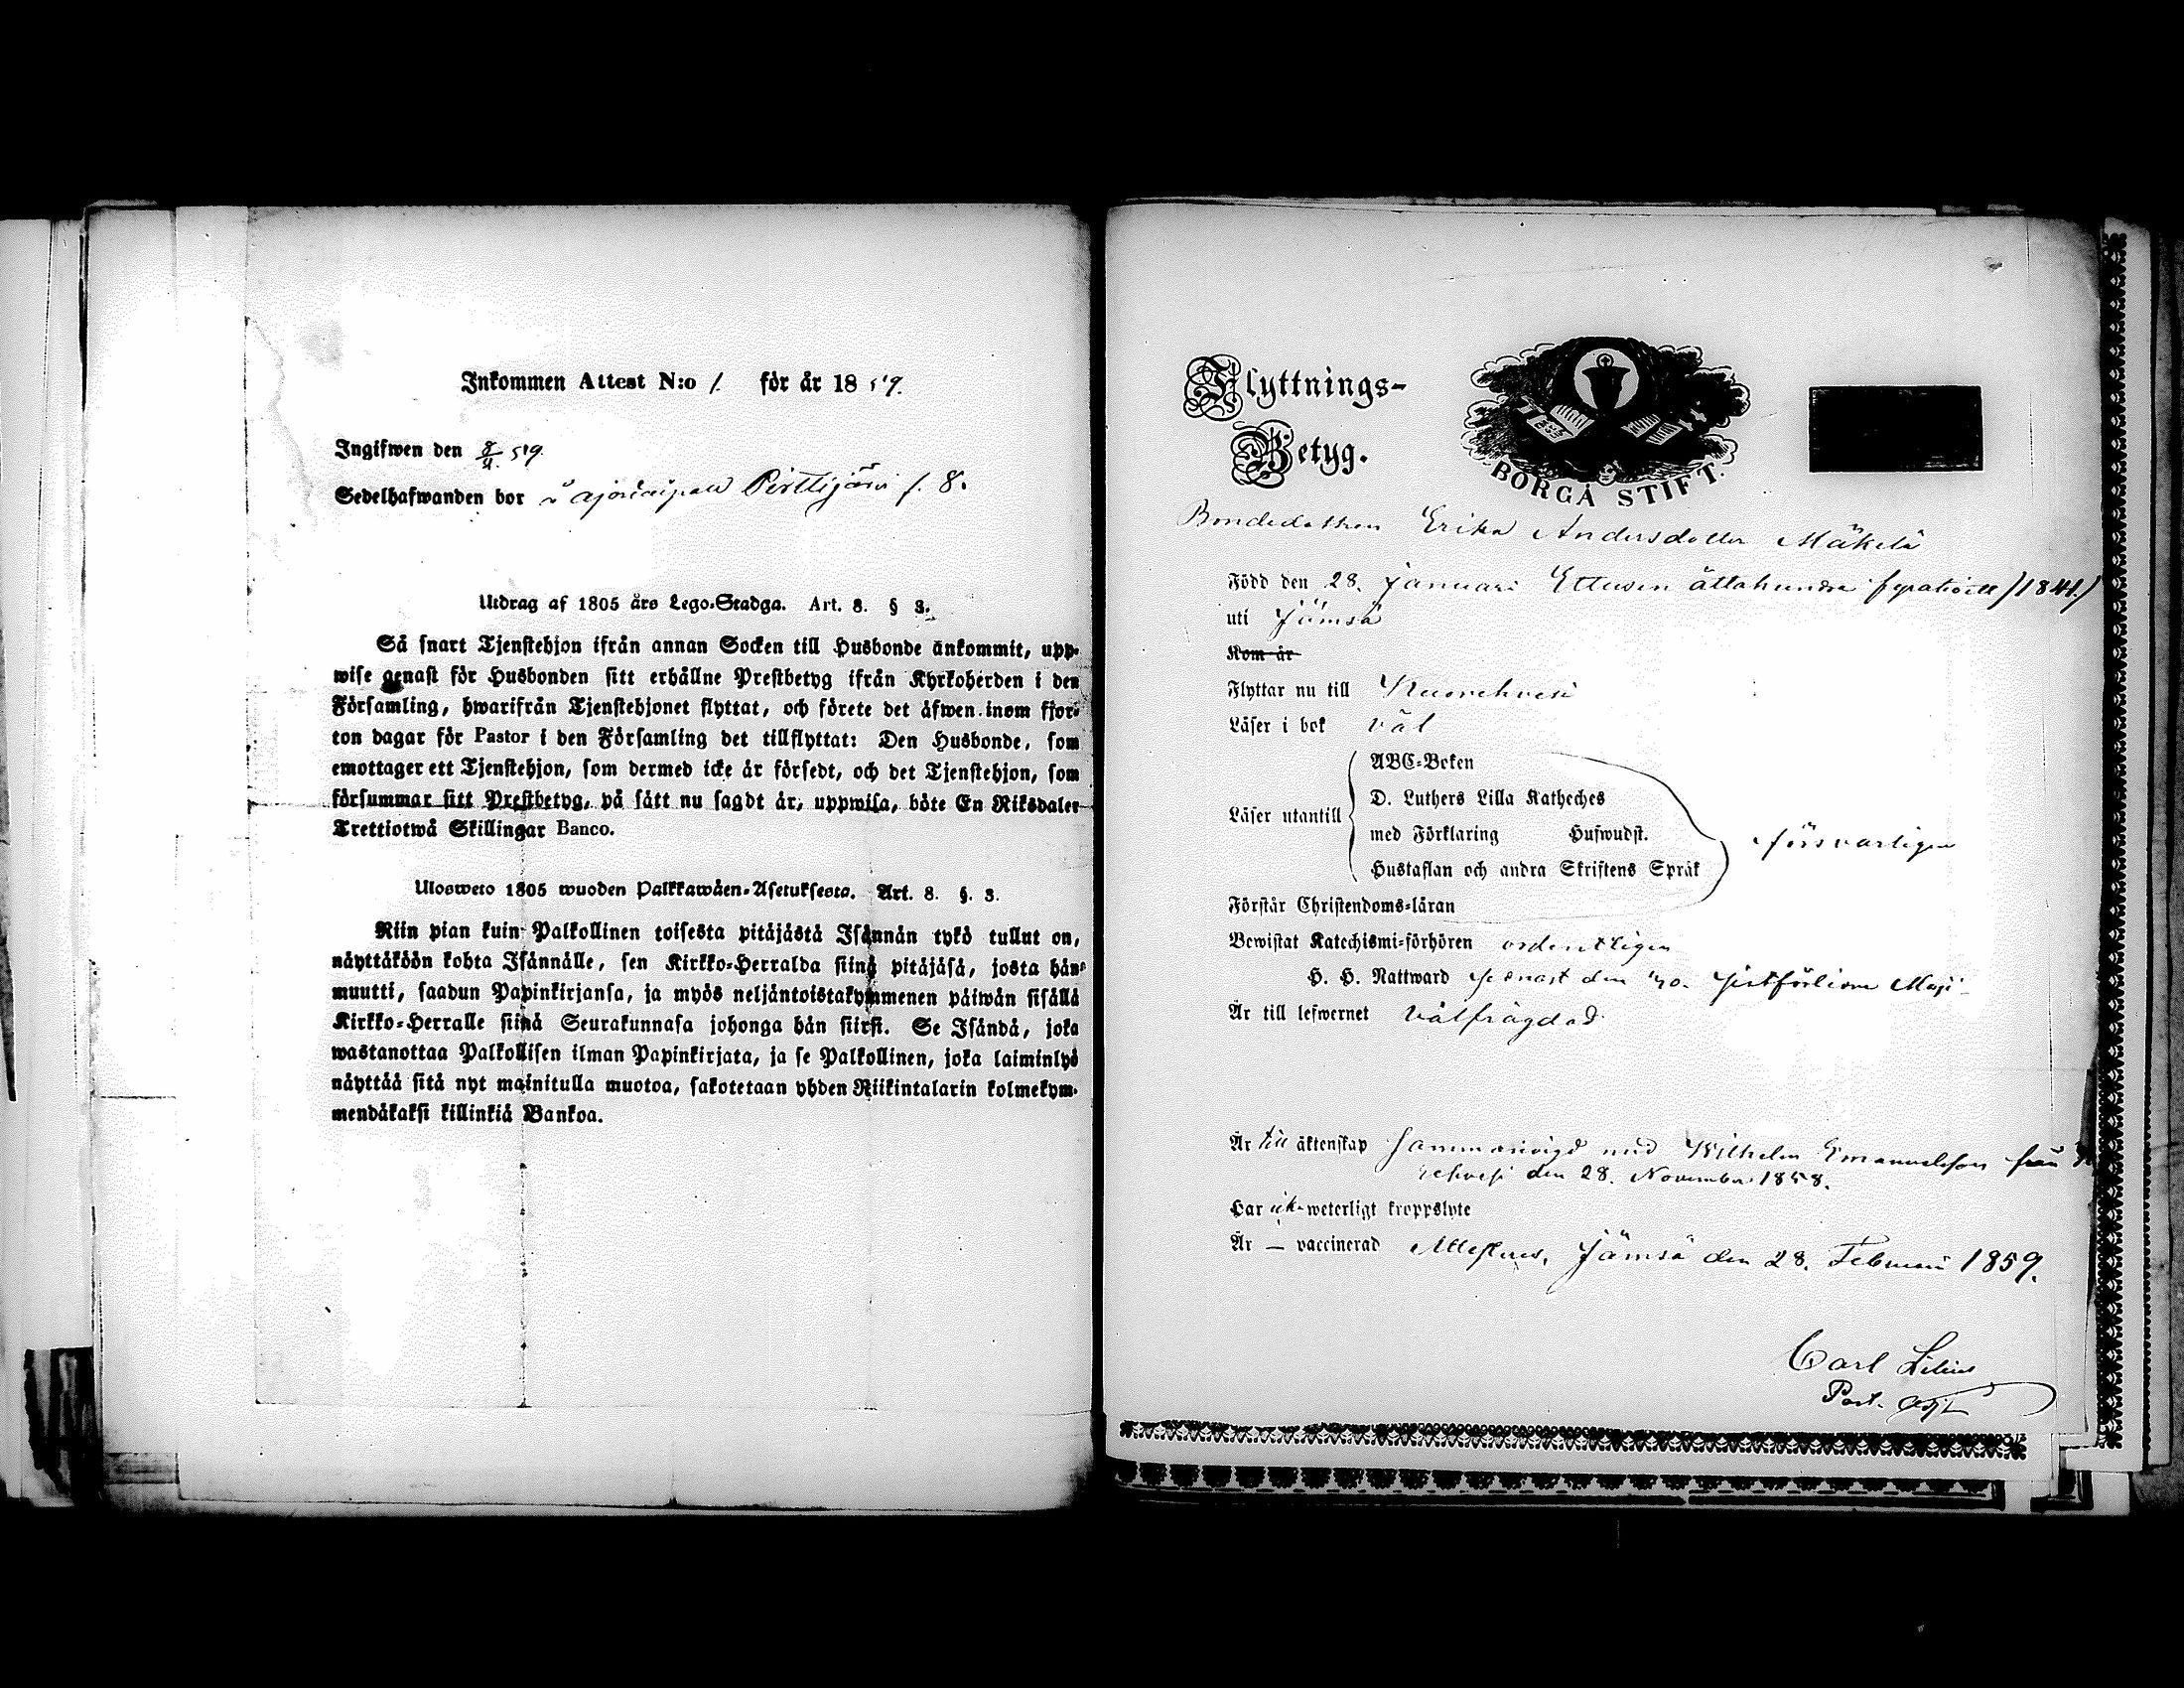 Inkommen Attest N:o 1. för år 1859.
Ingifwen den 8/4. 59.
Sedelhafwanden bor Pirttijärvi f. 8.
Utdrag af 1805 års Lego-Stadga. Art. 8. § 3.
Så snart Tjenstehjon ifrån annan Socken till Husbonde ankommit, upp-
wise genast för Husbonden sitt erhållne Prestbetyg ifrån Kyrkoherden i den
Församling, hwarifrån Tjenstehjonet flyttat, och förete det äfwen inom fjor-
ton dagar för Pastor i den Församling det tillflyttat: Den Husbonde, som
emottager ett Tjenstehjon, som dermed icke är försedt, och det Tjenstehjon, som
försummar sitt Prestbetyg, på sätt nu sagdt är, uppwisa, böte En Riksdaler
Trettiotwå Skillingar Banco.
Ulosweto 1805 wuoden Palkkawäen-Asetuksesta. Art. 8. §. 3.
Niin pian kuin Palkollinen toisesta pitäjästä Isännän tykö tullut on,
näyttäköön kohta Isännälle, sen Kirkko-Herralda siinä pitäjäsä, josta hän
muutti, saadun Papinkirjansa, ja myös neljäntoistakymmenen päiwän sisällä
Kirkko-Herralle siinä Seurakunnasa johonga hän siirsi. Se Isändä, joka
wastanottaa Palkollisen ilman Papinkirjata, ja se Palkollinen, joka laiminlyö
näyttää sitä nyt mainitulla muotoa, sakotetaan yhden Riikintalarin kolmekym-
mendäkaksi killinkiä Bankoa.
Flyttnings-
Betyg.
BORGÅ STIFT.
Bondedottren Erika Andersdotter Mäkelä
Född den 28. Januari Ettusen åttahundra fyrationett /1841./
uti Jämsä
Kom år
Flyttar nu till Kuorehvesi
Läser i bok väl
Läser utantill
ABC-Boken
D. Luthers Lilla Katheches
med Förklaring Hufwudst.
Hustaflan och andra Skriftens Språk
försvarligen
Förstår Christendoms-läran
Bewistat Katechismi-förhören ordentligen
H. H. Nattward senast den 30. sistförliden Maji
Är till lefwernet välfrägdad
Är till äktenskap sammanvigd med Wilhelm Emanuelsson från
rehvesi den 28. November 1858.
Har ick weterligt kroppslyte
Är — vaccinerad Attesteras, Jämsä den 28. Februari 1859.
Carl Lilius
Past. Adj.